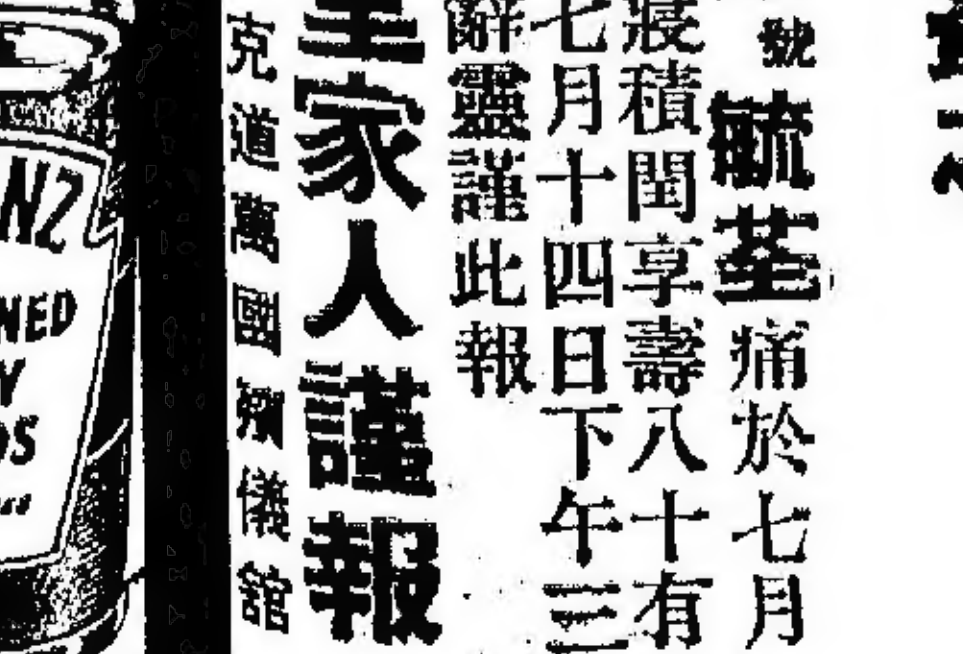 號 毓荃 痛於七月
寢積閏享壽八十有
七月十四日下午三
辭靈謹此報
家人謹報
克道萬國殯儀館
NZ
NED
Y